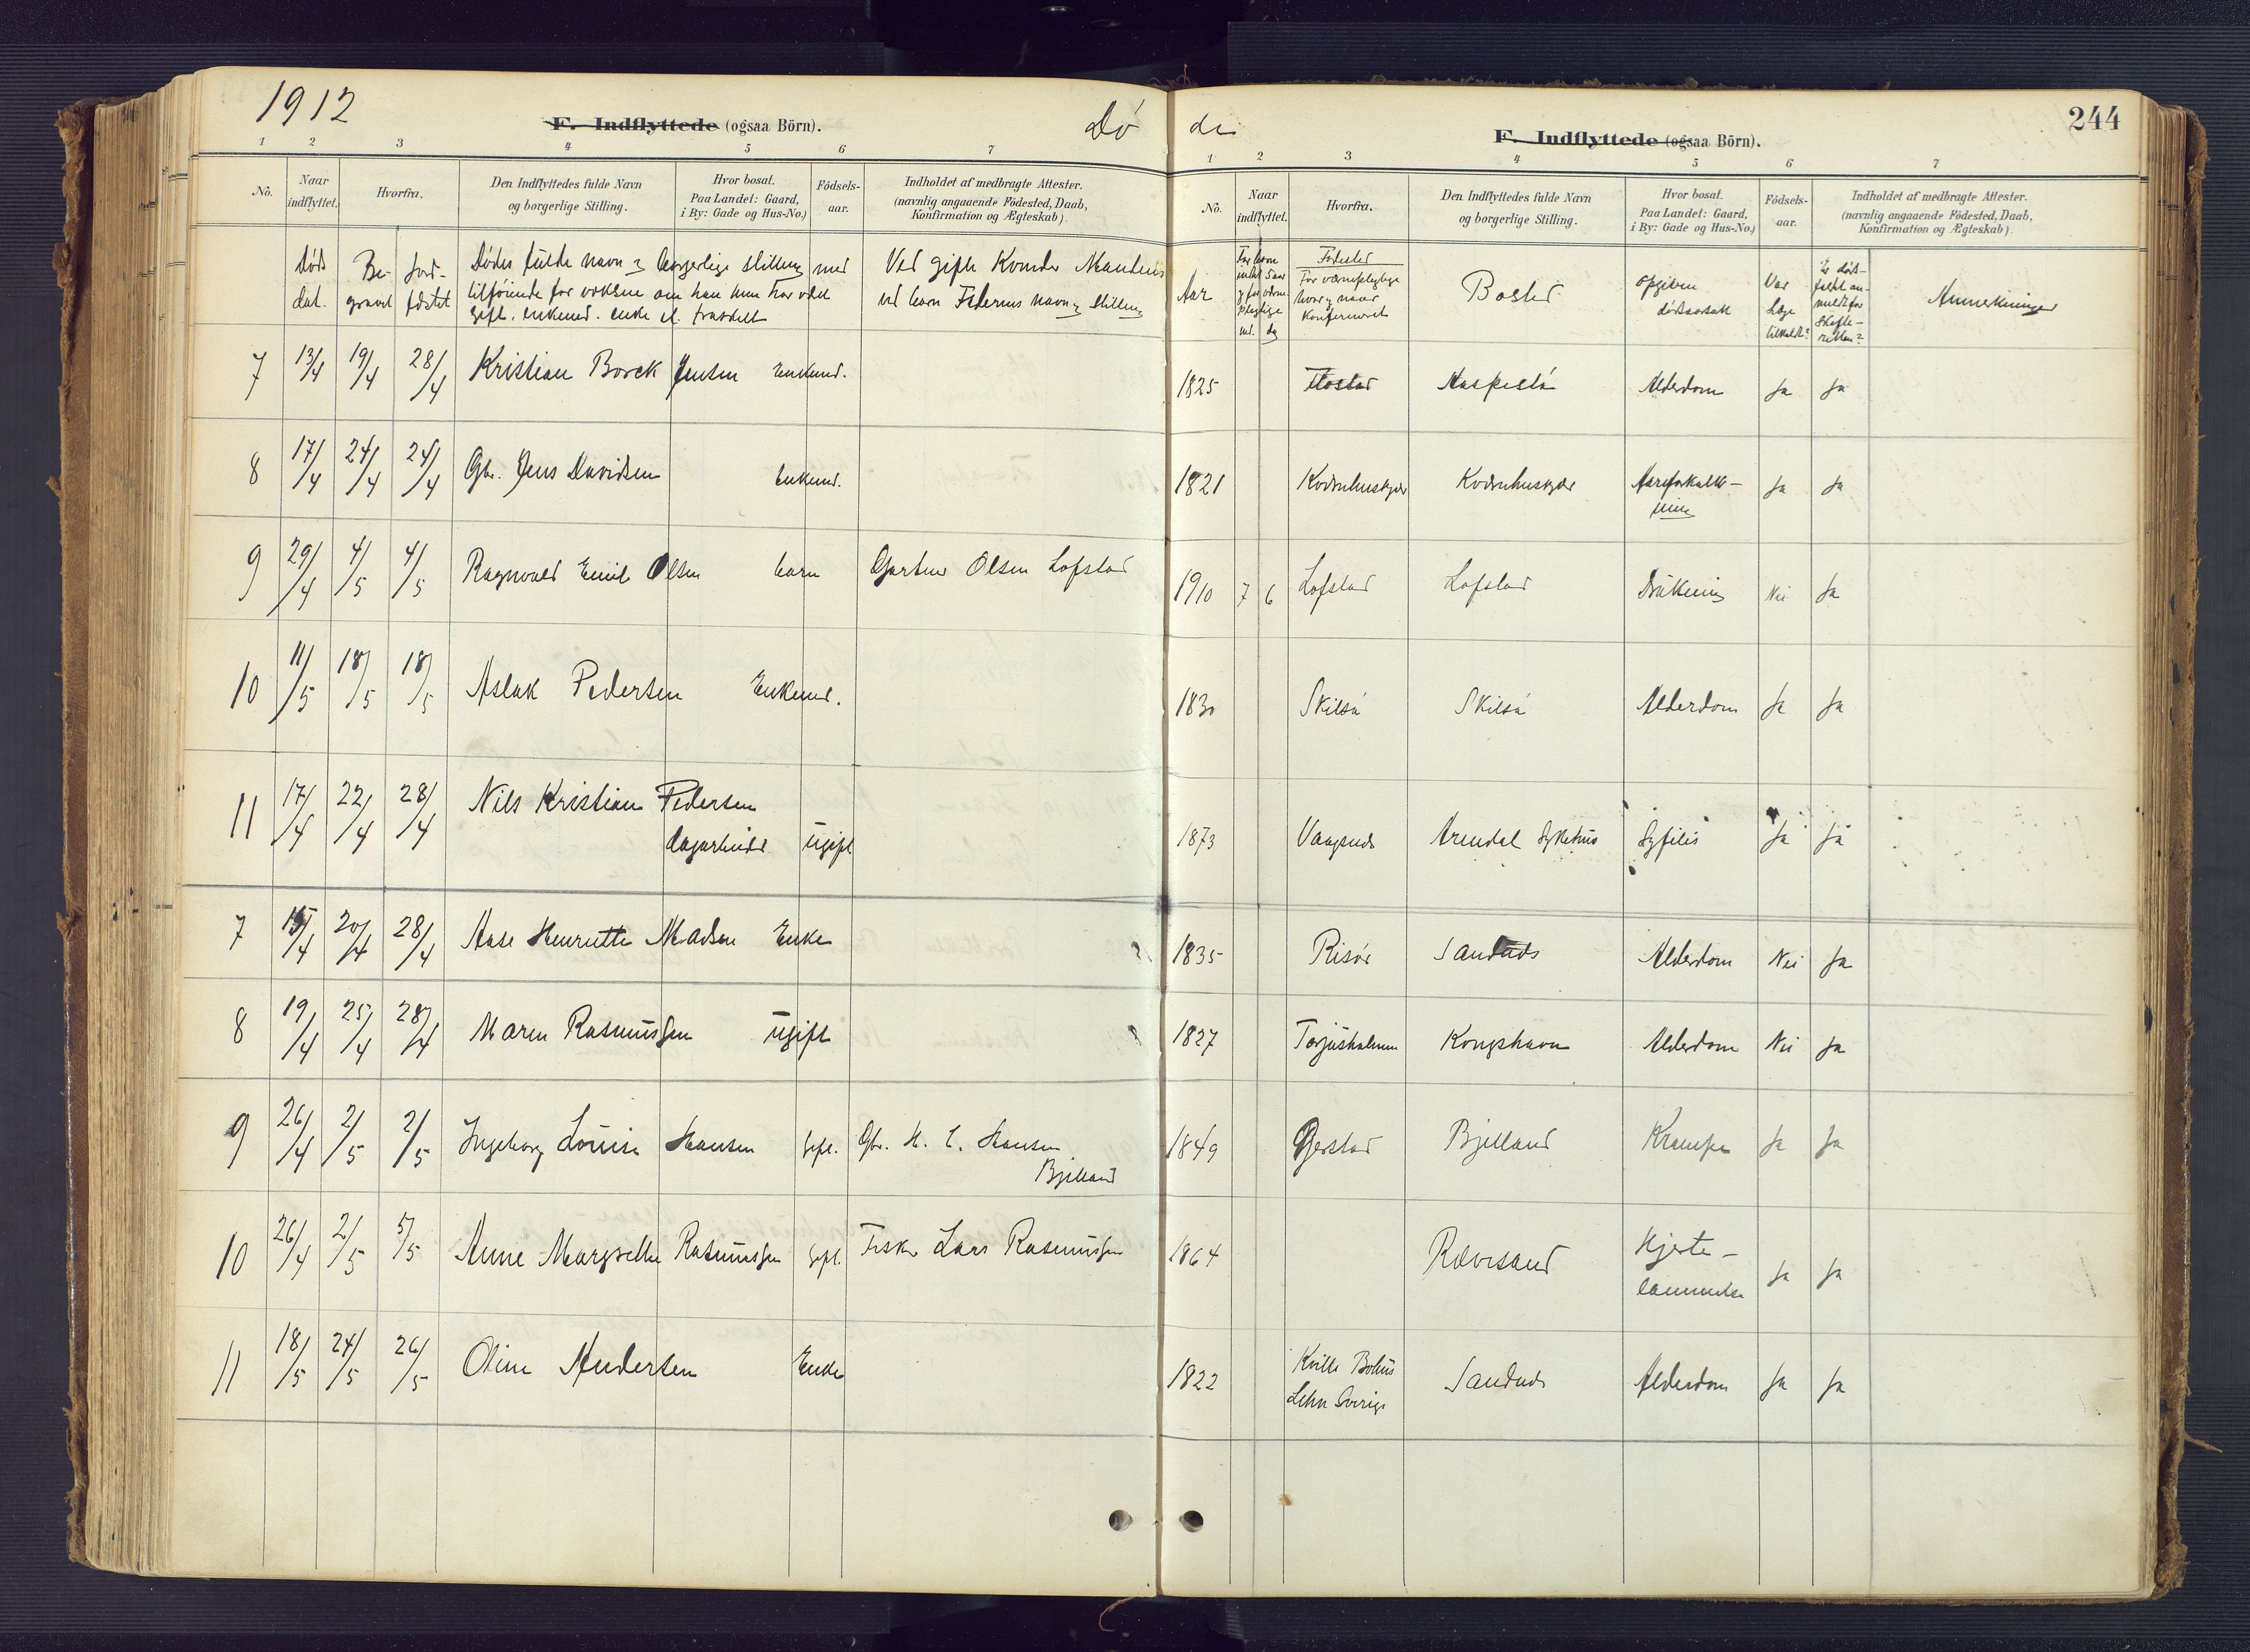 1912
F. Indflyttede (ogsaa Börn).
Dö
1 2 3 4 5 6 7
No. Naar indflyttet. Hvorfra. Den Indflyttedes fulde Navn og borgerlige Stilling. Hvor bosat. Paa Landet: Gaard, i By: Gade og Hus-No.) Födsels-aar. Indholdet af medbragte Attester. (navnlig angaaende Födested, Daab, Konfirmation og Ægteskab).
Döds dat. Be-gravet Jord-fæstet Dödes fulde navn og borgerlige stilling med
tilföiende for voksne om han hun har været
gift. enkemd. enke el. fraskilt
Ved gifte Kvinder Mandens
ved barn Faderens navn og stilling
7 13/4 19/4 28/4 Kristian Borck Jensen Enkemd.
8 17/4 24/4 24/4 Gbr. Jens Davidsen Enkemd.
9 29/4 4/5 4/5 Ragnvald Emil Olsen barn Gartner Olsen Lofstad
10 11/5 18/5 18/5 Aslak Pedersen Enkemd.
11 17/4 22/4 28/4 Nils Kristian Pedersen
dagarbeider ugift
7 15/4 20/4 28/4 Aase Henriette Madsen Enke
8 19/4 25/4 28/4 Maren Rasmussen ugift
9 26/4 2/5 2/5 Ingeborg Louise Hansen gift. Gbr. H. C. Hansen
Bjelland
10 26/4 2/5 5/5 Anne Margrethe Rasmussen gift. Fisker Lars Rasmussen
11 18/5 24/5 26/5 Oline Andersen Enke
de
F. Indflyttede (ogsaa Börn).
244
1 2 3 4 5 6 7
No. Naar indflyttet. Hvorfra. Den Indflyttedes fulde Navn og borgerlige Stilling. Hvor bosat. Paa Landet: Gaard, i By: Gade og Hus-No.) Födsels-aar. Indholdet af medbragte Attester. (navnlig angaaende Födested, Daab, Konfirmation og Ægteskab).
Aar For barn indtil 5 aar og for værnepligtige md. dag
Födested
For værnepligtige
hvor og naar
Konfirmeret
Bosted
Opgiven
dödsaarsak
Var
Læge
tilkaldt?
Er döds-
faldet an-
meldt for
Skifte-
retten?
Anmerkninger
1825 Flostad Narestö Alderdom Ja Ja
1821 Kvernhuskjær Kvernhuskjær Aareforkalk-
ning Ja Ja
1910 7 6 Lofstad Lofstad Drukning Nei Ja
1830 Skilsö Skilsö Alderdom Ja Ja
1873 Vaagsnes Arendal Sykehus Syfilis Ja Ja
1835 Risör Sandnes Alderdom Nei Ja
1827 Torjusholmen Kongshavn Alderdom Nei Ja
1849 Gjerstad Bjelland Krampe Ja Ja
1864 Rævesand Hjerte-
lammelse Ja Ja
1822 Kville Bohus
Lehn Sverige Sandnes Alderdom Ja Ja